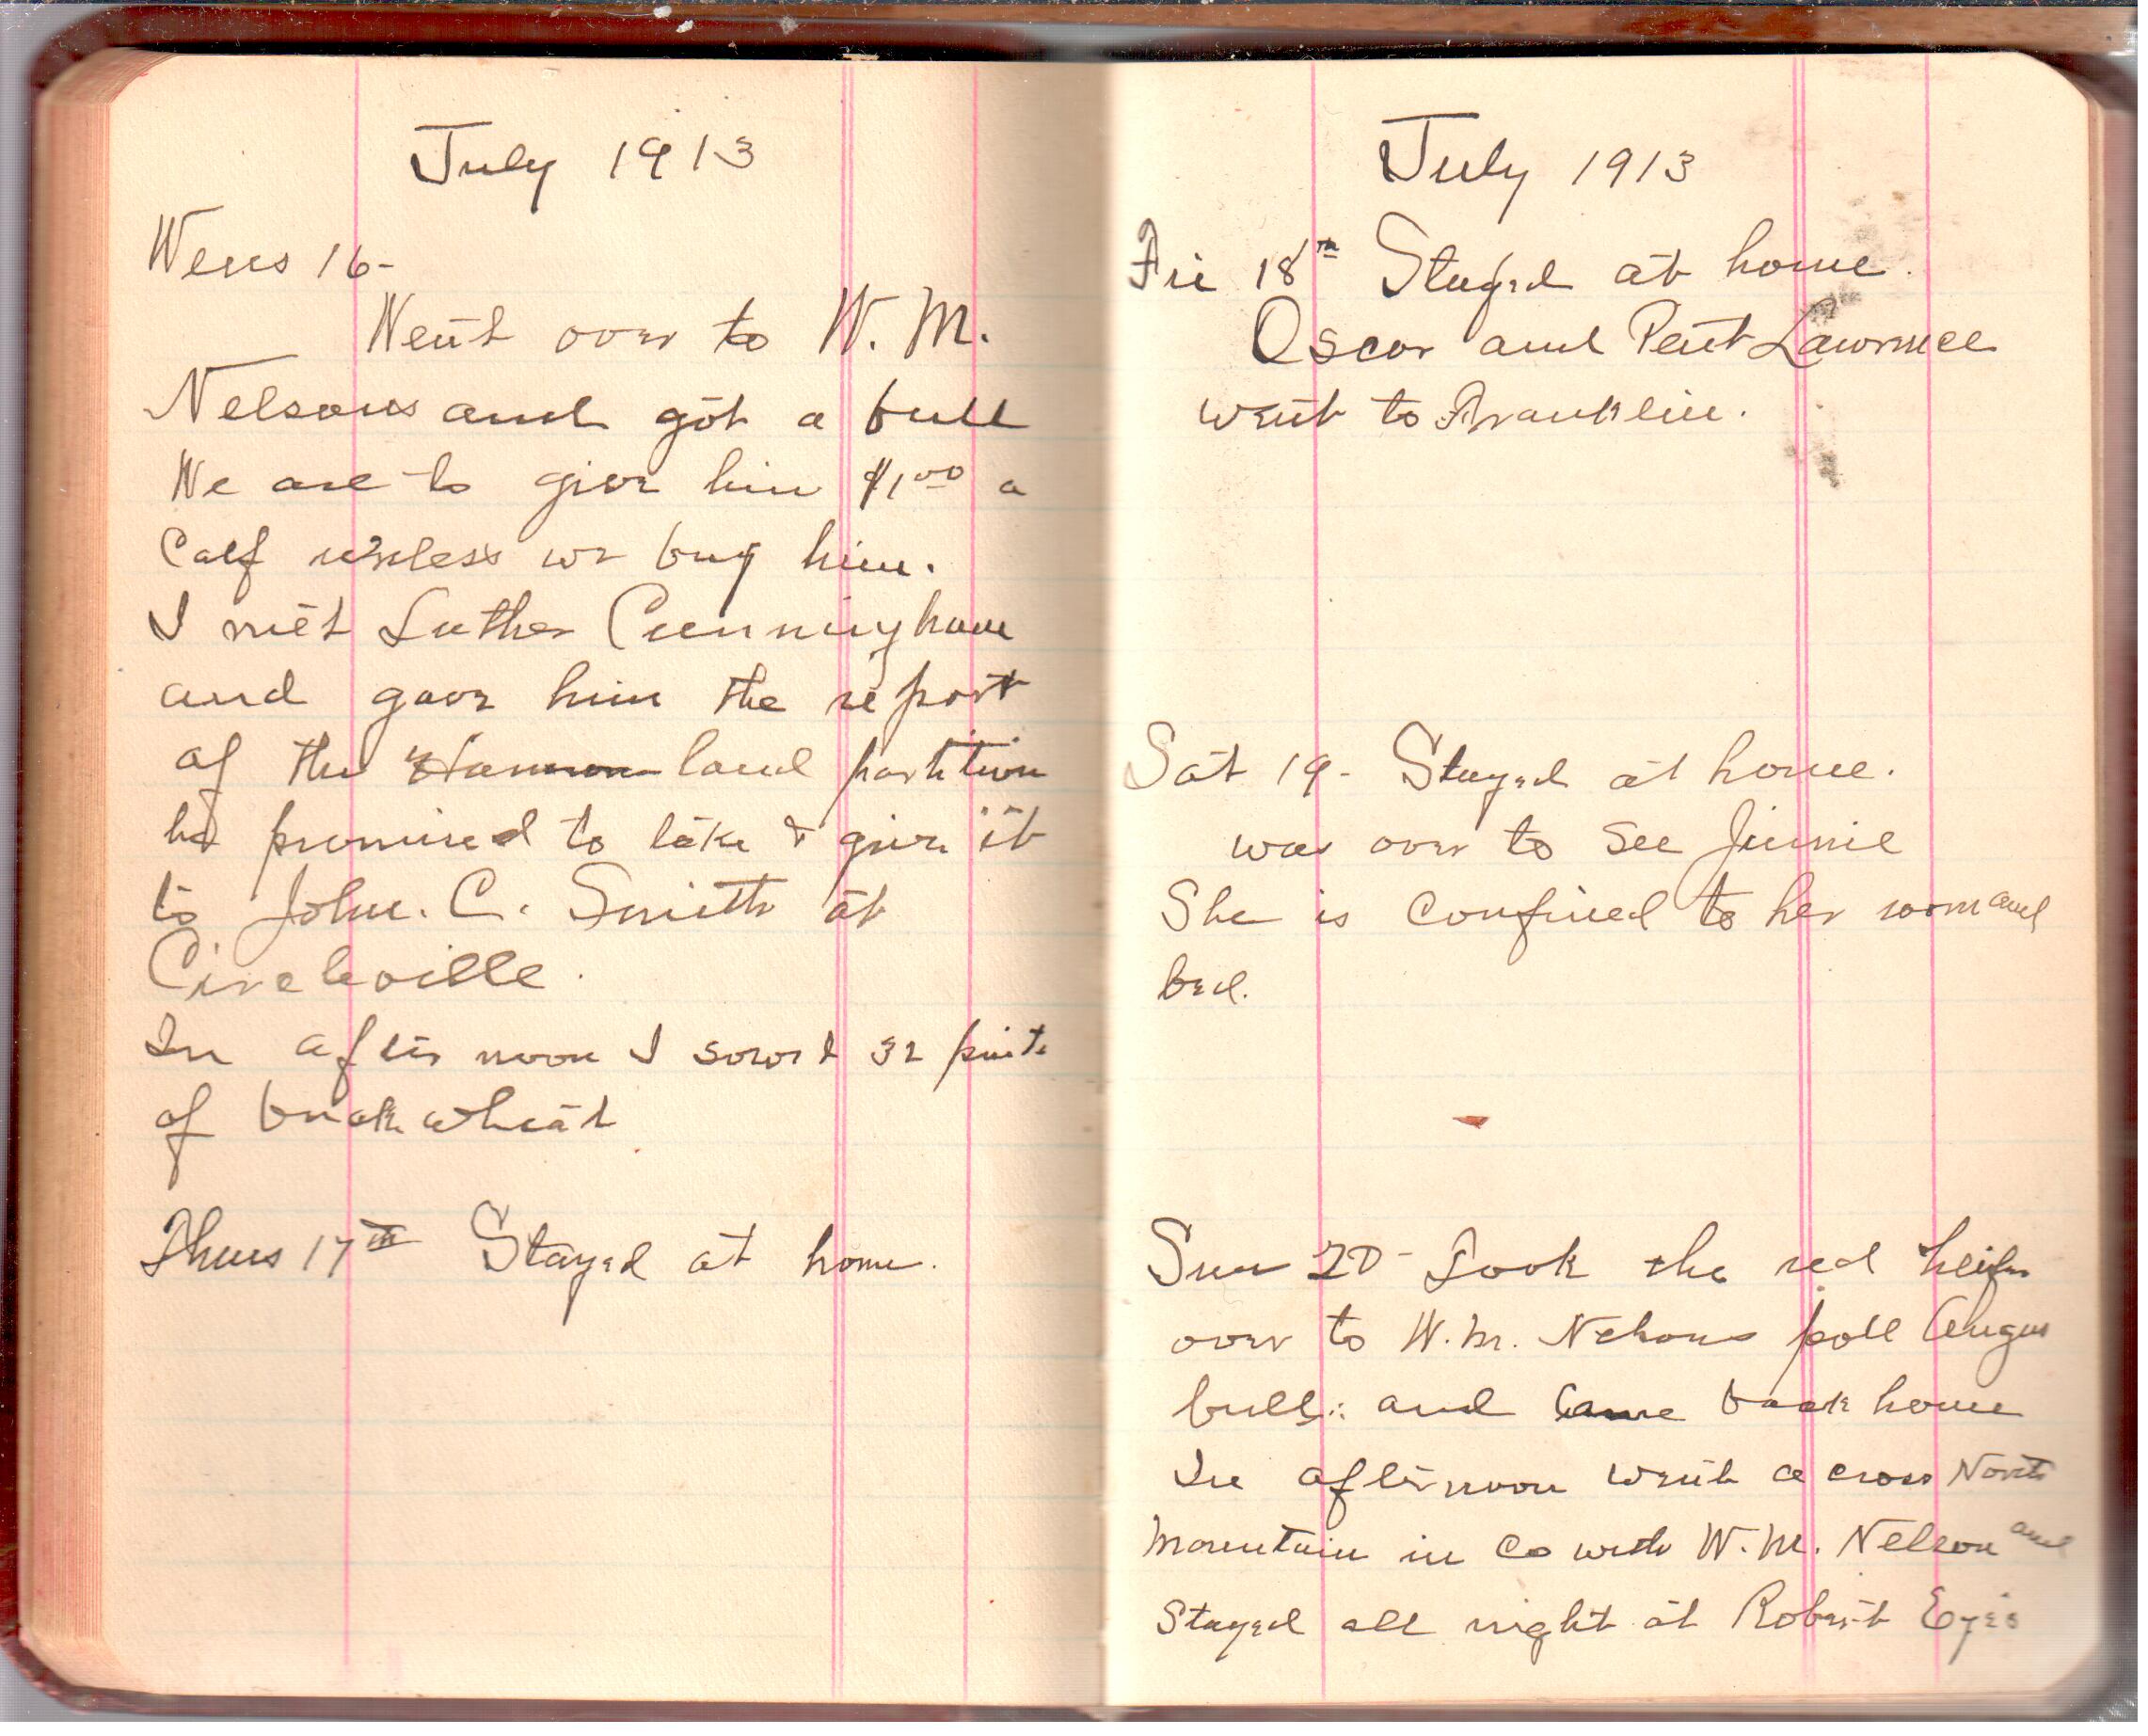 July 1913
Wens 16-
Went over to W. M.
Nelsons and got a bull
We are to give him $1.00 a
Calf unless we buy him.
I met Luther Cunningham
and gave him the report
of the Harmon land partition
he promised to take & give it
to John. C. Smith at
Circleville.
In after noon I sowed 32 pints
of buck wheat
Thurs 17th Stayed at home.
July 1913
Fri 18th Stayed at home.
Oscar and Pent Lawrence
went to Franklin.
Sat 19- Stayed at home.
was over to see Jinnie
She is confined to her room and
bed.
Sun 20- Took the red heifer
over to W. M. Nelsons poll Angus
bull: and came back home
In afternoon went a cross North
Mountain in Co with W. M. Nelson and
Stayed all night at Robert Eye's